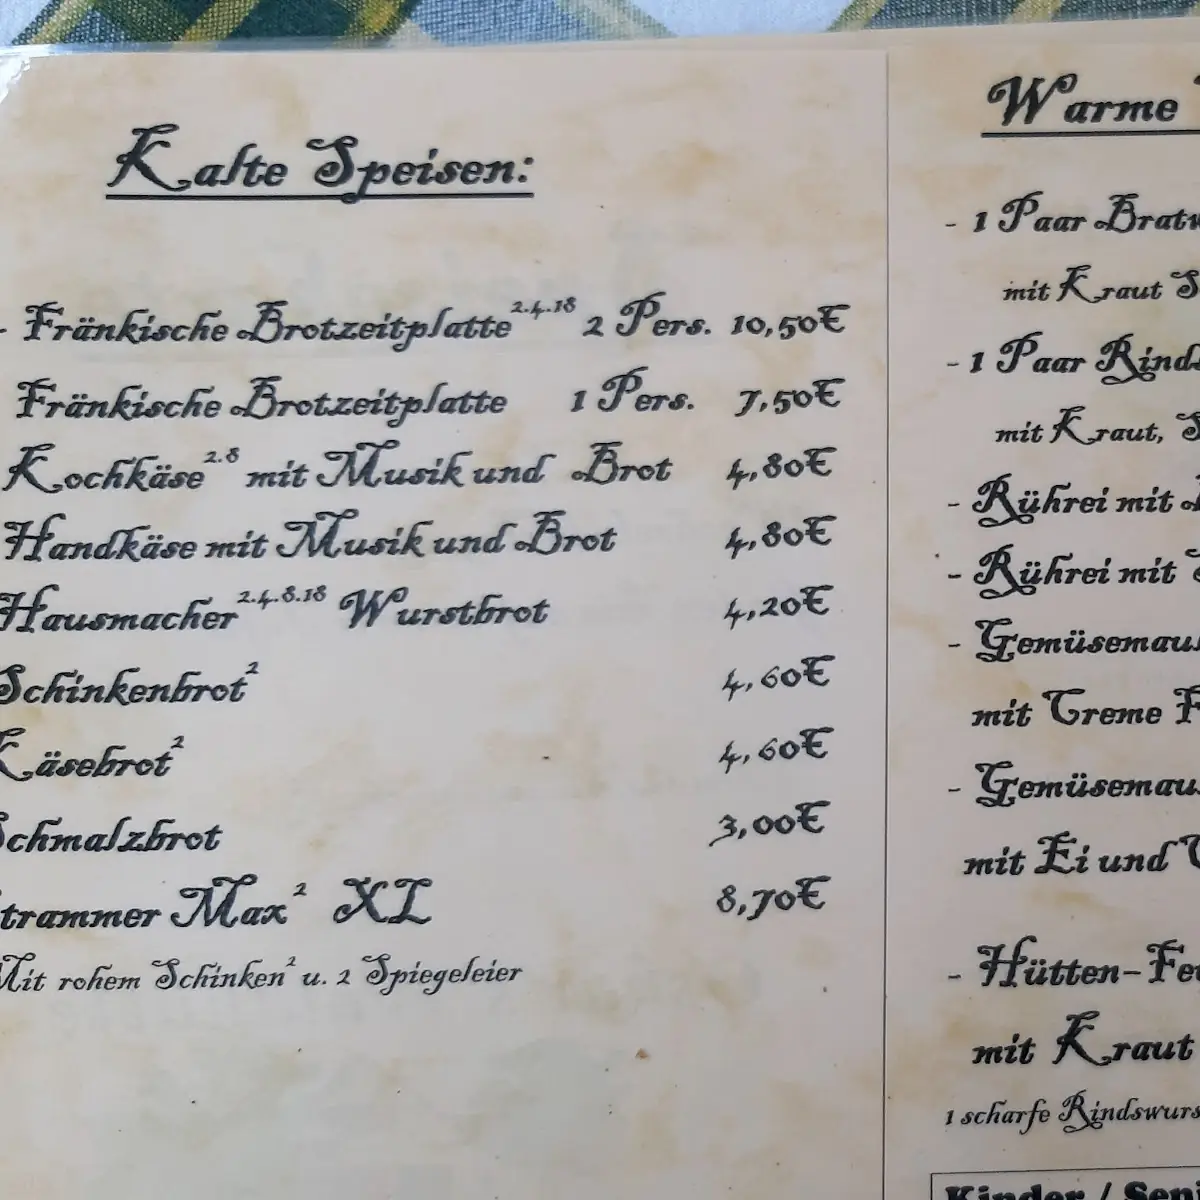 Kalte Speisen:
- Fränkische Brotzeitplatte 2.4.18 2 Pers. 10,50€
Fränkische Brotzeitplatte 1 Pers. 7,50€
Kochkäse 2.8 mit Musik und Brot 4,80€
Handkäse mit Musik und Brot 4,80€
Hausmacher 2.4.8.18 Wurstbrot 4,20€
Schinkenbrot 2 4,60€
Käsebrot 2 4,60€
Schmalzbrot 3,00€
trammer Max 2 XL 8,70€
Mit rohem Schinken 2 u. 2 Spiegeleier
Warme
- 1 Paar Bratw
mit Kraut S
- 1 Paar Rinds
mit Kraut, S
- Rührei mit
- Rührei mit
- Gemüsemau
mit Creme F
- Gemüsemau
mit Ei und
- Hütten-Feu
mit Kraut
1 scharfe Rindswurs
Kinder / Seni